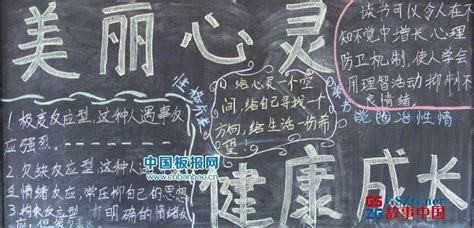 美丽心灵
健康成长
读书可以令人在
不知觉中增长心理
防卫机制,使人学会
用理智活动抑制不
良情绪。
能陶冶性情
给心灵一个空
间,给自己寻找一个
方向,给生活一份希
望!
1.极度反应型,这种人遇事反
应强烈.
2.欠缺反应型,这种人
情绪反应,常压抑自己的思想
3. 有明确的情绪反
应,但
中国板报网
www.cnbanbao.cn
GSZG.net
故事中国